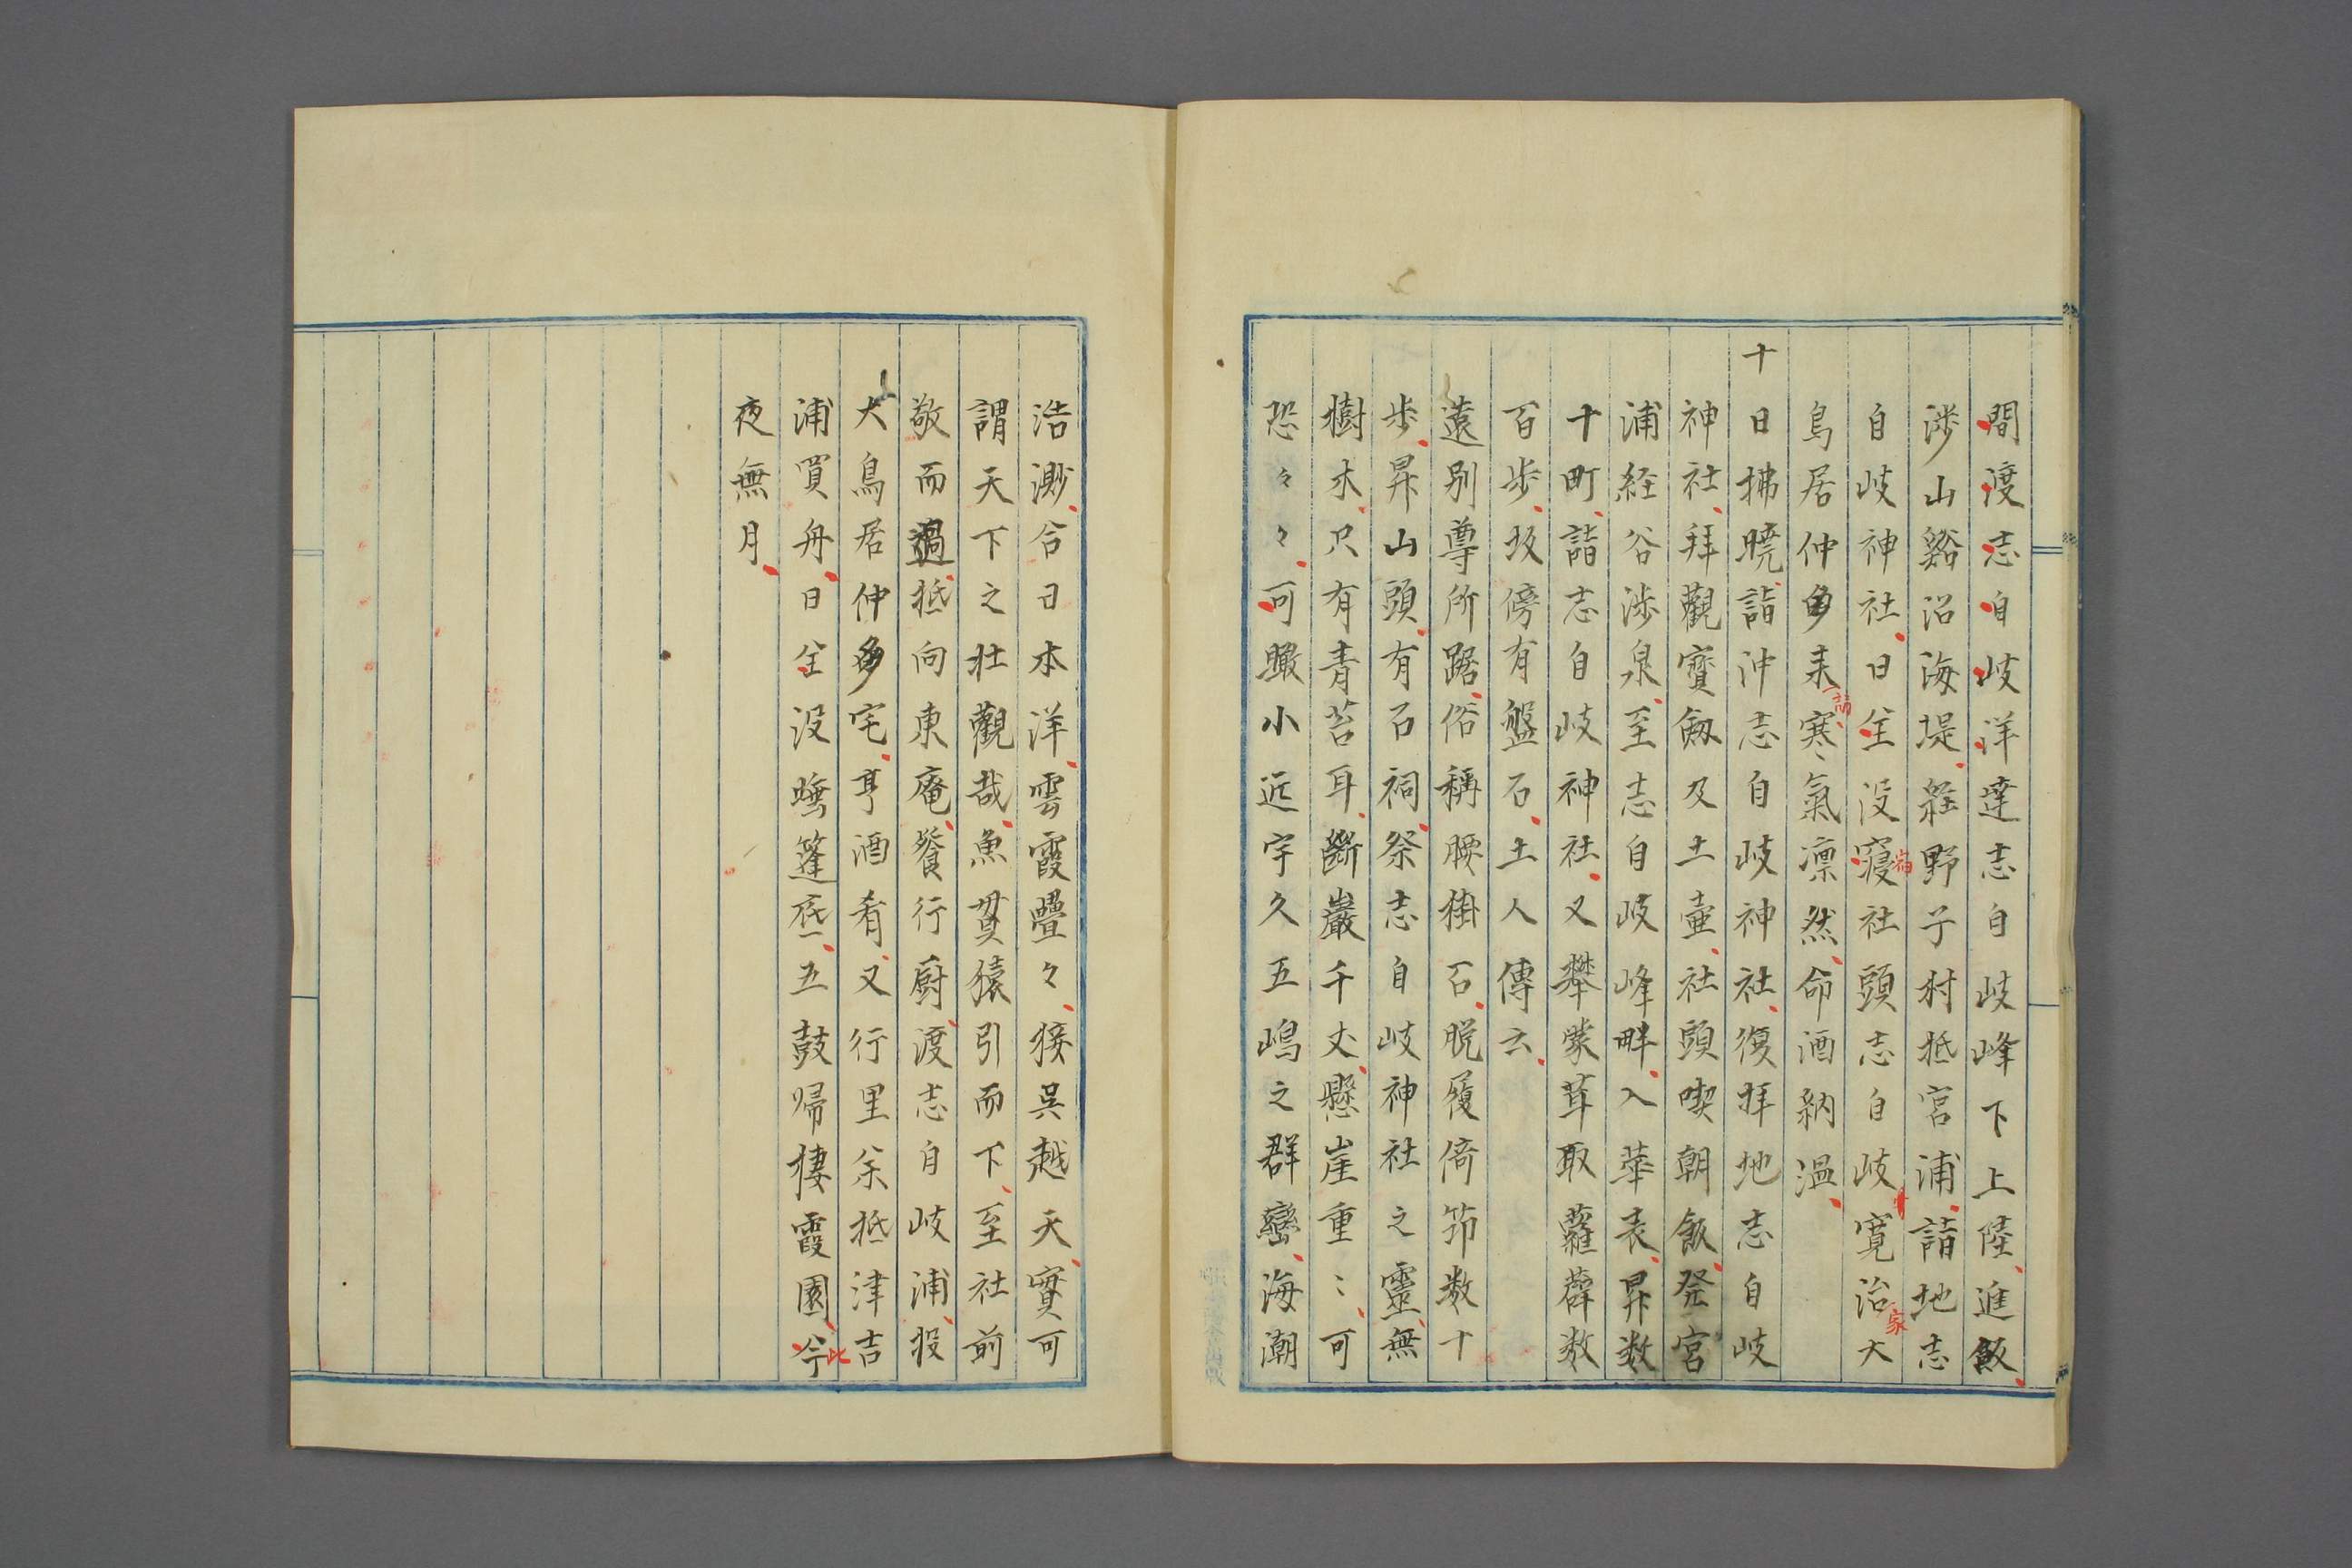 間渡志自岐洋達志自岐峰下上陸進飯
渉山谿沿海堤経野子村抵宮浦詣地志
自岐神社日全没寝社頭志自岐寛治大
宿
家
鳥居仲多来寒氣凛然命酒納温
十日拂暁詣沖志自岐神社復拝地志自岐
神社拜觀寶劔及土壷社頭喫朝飯発宮
浦経谷渉泉至志自岐峰畔入華表昇数
十町詣志自岐神社又攀蒙茸取蘿薜数
百歩坂傍有盤石土人傳云
遠別尊所踞俗稱腰掛石脱履倚筇数十
歩昇山頭有石祠祭志自岐神社之靈無
樹木只有青苔耳斷巖千丈懸崖重々可
恐々々可瞰小近宇久五嶋之群巒海潮
浩渺合日本洋雲霞疊々接呉越天實可
謂天下之壮觀哉魚貫猿引而下至社前
敬而過抵向東庵餐行厨渡志自岐浦投
大鳥居仲多宅亨酒肴又行里余抵津吉
浦買舟日全没蜷篷底五鼓帰棲霞園今
此
夜無月